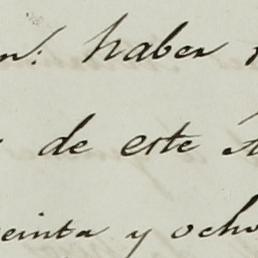 n: haber
de este
einta y ocho